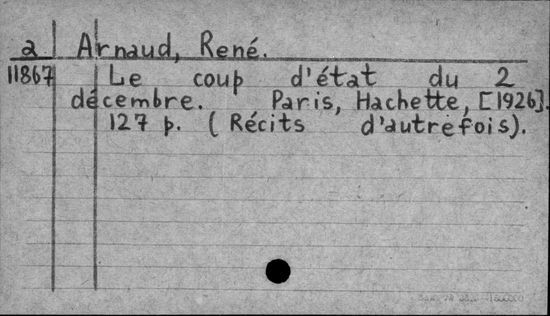 a Arnaud, René.
11867 Le coup d'état du 2
décembre. Paris, Hachette, [1926].
127 p. (Récits d'autrefois).